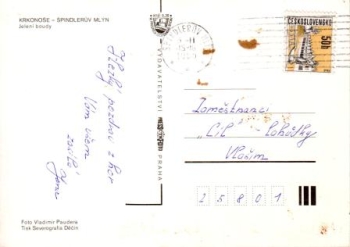 KRKONOŠE – ŠPINDLERŮV MLÝN
Jelení boudy
Hezký pozdrav z hor
Vám všem
zasílá
Jana
Foto Vladimír Pauděra
Tisk Severografia Děčín
VYDAVATELSTVÍ
PRAHA
ČESKOSLOVENSKO
50h
Zaměstnanci
"Lil" - Lohožky
Vlašim
25801